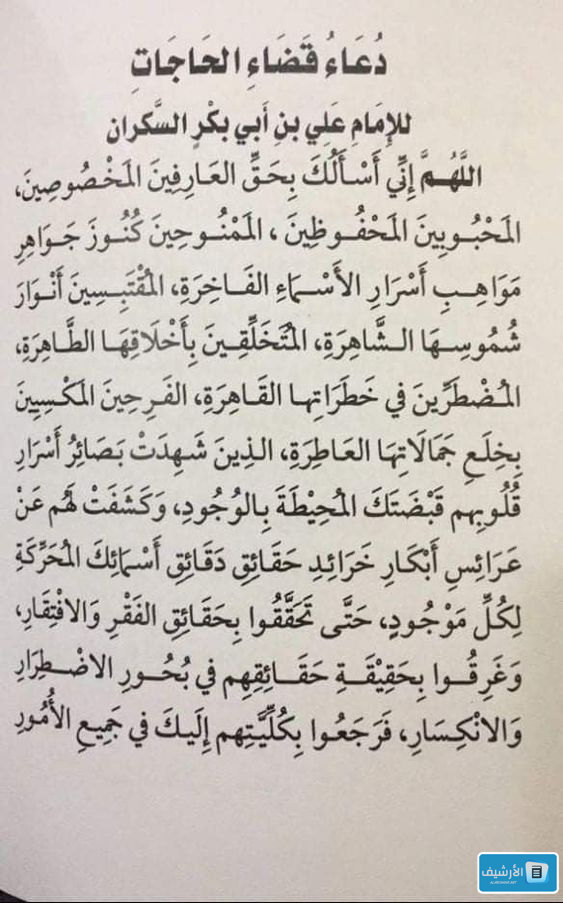 دُعَاءُ قَضَاءِ الحَاجَاتِ
للإِمَامِ عَلِي بنِ أَبي بكْرٍ السَّكران
اللَّهُمَّ إِنِّي أَسْأَلُكَ بِحَقِّ العَارِفِينَ المَخْصُوصِينَ،
المَحْبُوبِينَ المَحْفُوظِينَ، المَمْنُوحِينَ كُنُوزَ جَوَاهِرِ
مَوَاهِبِ أَسْرَارِ الأَسْمَاءِ الفَاخِرَةِ، المُقْتَبِسِينَ أَنْوَارَ
شُمُوسِهَا الشَّاهِرَةِ، المُتَخَلِّقِينَ بِأَخْلَاقِهَا الطَّاهِرَةِ،
المُضْطَرِّينَ فِي خَطَرَاتِها القَاهِرَةِ، الفَرِحِينَ المَكْسِيِينَ
بِخِلَعِ جَمَالَاتِهَا العَاطِرَةِ، الذِينَ شَهِدَتْ بَصَائِرُ أَسْرَارِ
قُلُوبِهم قَبْضَتَكَ المُحِيْطَةَ بِالوُجُودِ، وَكَشَفَتْ لَهُم عَنْ
عَرَائِسِ أَبْكَارِ خَرَائِدِ حَقَائِقِ دَقَائِقِ أَسْمَائِكَ المُحَرِّكَةِ
لِكُلِّ مَوْجُودٍ، حَتَّى تَحَقَّقُوا بِحَقَائِقِ الفَقْرِ وَالافْتِقَارِ،
وَغَرِقُوا بِحَقِيْقَةِ حَقَائِقِهِم فِي بُحُورِ الاضْطِرَارِ
وَالانْكِسَارِ، فَرَجَعُوا بِكُلِّيَّتِهم إِلَيكَ فِي جَمِيعِ الأُمُورِ
الأرشيف